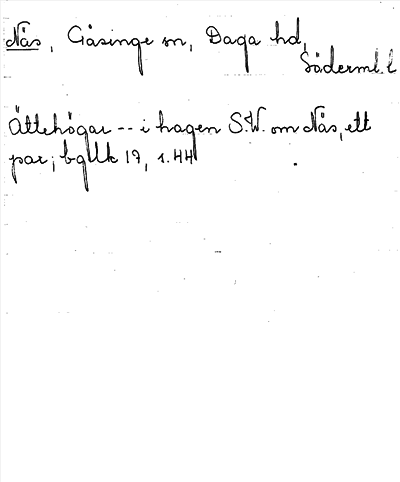 Näs, Gåsinge sn, Daga hd,
Söderml. l
Ättehögar -- i hagen S.W. om Näs, ett
par; bgllk 17, s. 44